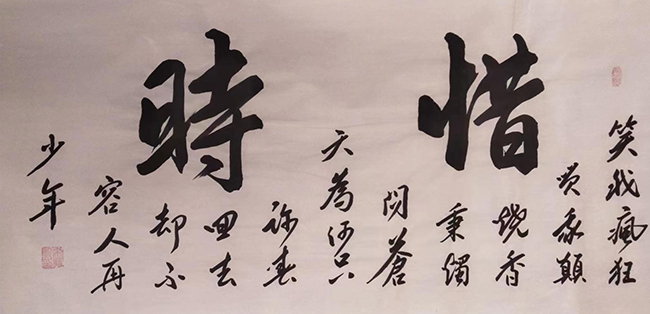 惜時
笑我瘋狂
笑我顛
燒香
秉燭
問蒼
天為何只
許春
回去
却不
容人再
少年